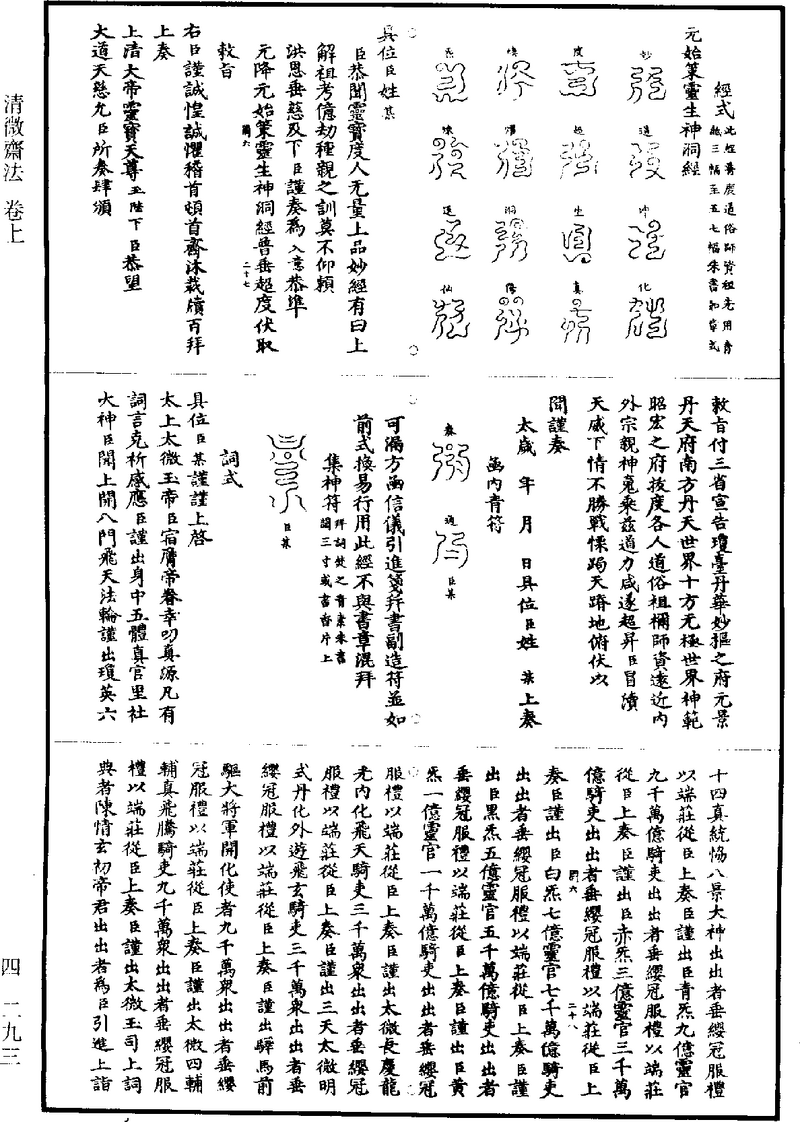 經式
此經普度道俗師資祖考用青
紙三幅至五七幅朱書如章式
元始策靈生神洞經
具位臣姓某
臣恭聞靈寶度人无量上品妙經有曰上
解祖考億劫種親之訓莫不仰賴
洪恩垂慈及下臣謹奏爲入意恭準
元降元始策靈生神洞經普垂超度伏取
敕旨
右臣謹誠惶誠懼稽首頓首齋沐裁牘百拜
上奏
上清大帝靈寶天尊玉陛下臣恭望
大道天慈允臣所奏肆頒
敕旨付三省宣告瓊臺丹華妙摳之府元景
丹天府南方丹天世界十方无極世界神範
昭宏之府拔度各人道俗祖禰師資遠近內
外宗親神鬼乘玆道力咸遂超昇臣冒瀆
天威下情不勝戰慄跼天蹐地俯伏以
聞謹奏
太歲 年 月 日具位臣姓 某上奏
函內青符
臣某
可漏方函信儀引進箋幷書副造符並如
前式換易行用此經不與書章混拜
集神符
拜詞焚之青素朱書
闊三寸或書香片上
臣某
詞式
具位臣某謹謹上啓
太上太微玉帝臣宿膺帝眷幸叨真源凡有
詞言克祈感應臣謹出身中五體真官里社
大神臣聞上開八門飛天法輪謹出瓊英六
十四真統恊八景大神出出者垂纓冠服禮
以端莊從臣上奏臣謹出臣青炁九億靈官
九千萬億騎吏出出者垂纓冠服禮以端莊
從臣上奏臣謹出臣赤炁三億靈官三千萬
億騎吏出出者垂纓冠服禮以端莊從臣上
奏臣謹出臣白炁七億靈官七千萬億騎吏
出出者垂纓冠服禮以端莊從臣上奏臣謹
出臣黑炁五億靈官五千萬億騎吏出出者
垂纓冠服禮以端莊從臣上奏臣謹出臣黄
炁一億靈官一千萬億騎吏出出者垂纓冠
服禮以端莊從臣上奏臣謹出太微長慶龍
光內化飛天騎吏三千萬衆出出者垂纓冠
服禮以端莊從臣上奏臣謹出三天太微明
式丹化外遊飛玄騎吏三千萬衆出出者垂
纓冠服禮以端莊從臣上奏臣謹出驛馬前
驅大將軍開化使者九千萬衆出出者垂纓
冠服禮以端莊從臣上奏臣謹出太微四輔
輔真飛騰騎吏九千萬衆出出者垂纓冠服
禮以端莊從臣上奏臣謹出太微玉司上詞
典者陳情玄初帝君出出者爲臣引進上詣
清微齋法 卷上
四 二九三